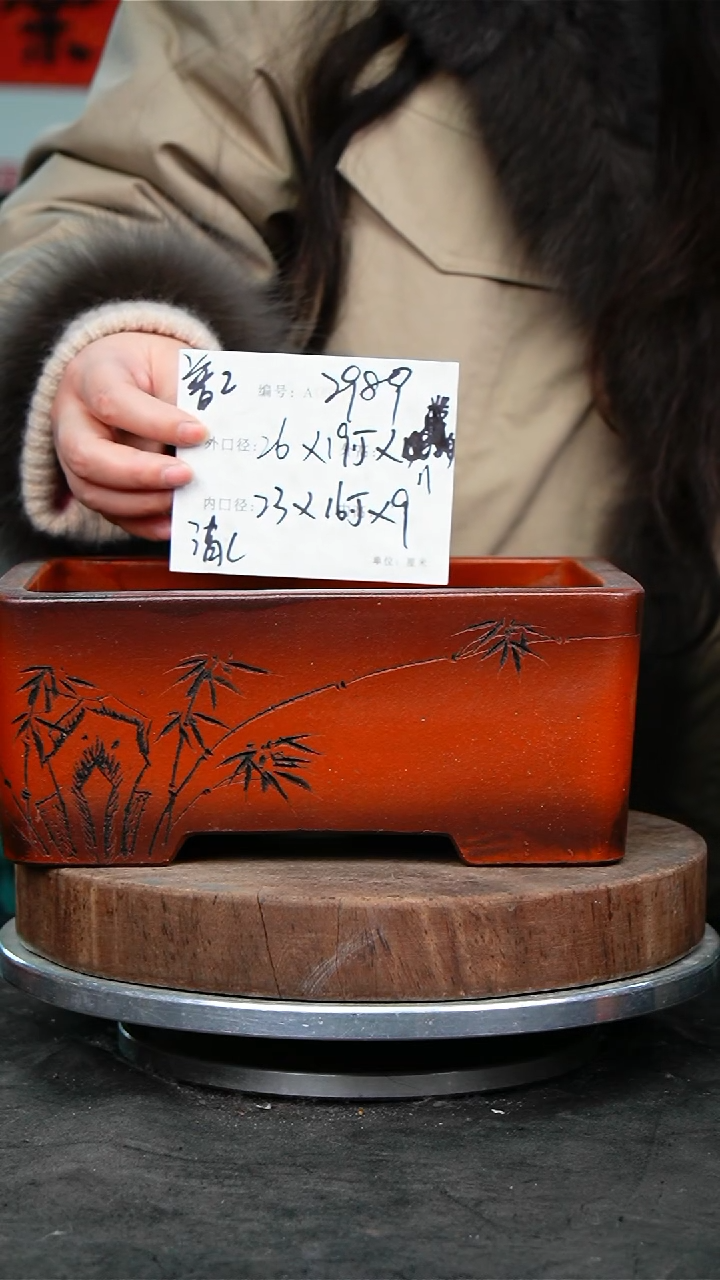 普2 编号: A 2989
外口径: 26 X 19.5 X 11
内口径: 23 X 16.5 X 9
清
单位: 厘米